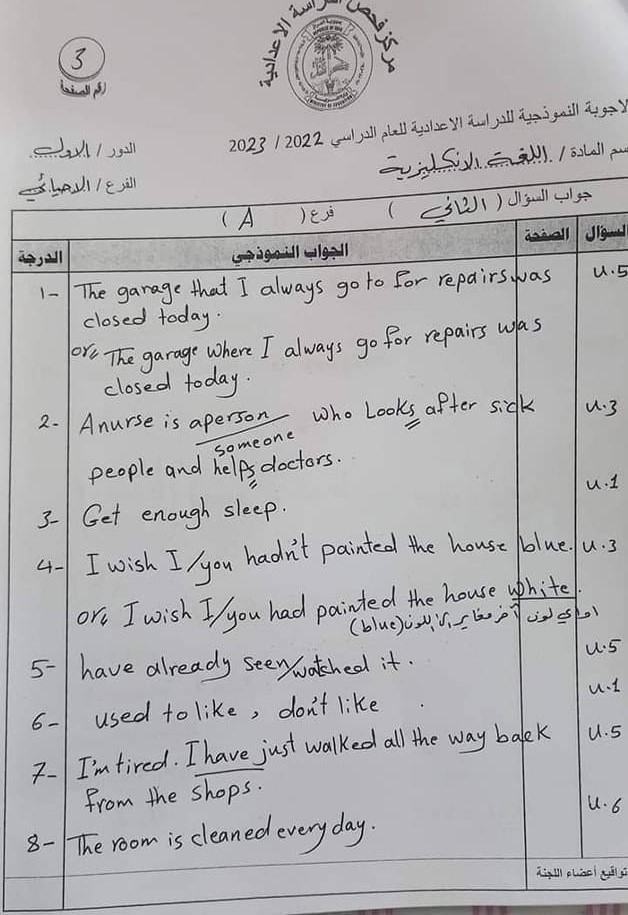 مركز فحص الدراسة الاعدادية
3
رقم الصفحة
الاجوبة النموذجية للدراسة الاعدادية للعام الدراسي 2022 / 2023
الدور / الاول
اسم المادة / اللغة الانكليزية
الفرع / الاحيائي
جواب السؤال ( الثاني ) فرع ( A )
السؤال الصفحة الجواب النموذجي الدرجة
1- The garage that I always go to for repairs was u.5
closed today.
or: The garage where I always go for repairs was
closed today.
2- A nurse is a person who Looks after sick u.3
someone
people and helps doctors.
3- Get enough sleep. u.1
4- I wish I/you hadn't painted the house blue. u.3
or: I wish I/you had painted the house white.
او اي لون آخر مغاير للون (blue)
5- have already seen/watched it. u.5
6- used to like , don't like u.1
7- I'm tired. I have just walked all the way back u.5
from the shops.
8- The room is cleaned every day. u.6
تواقيع أعضاء اللجنة